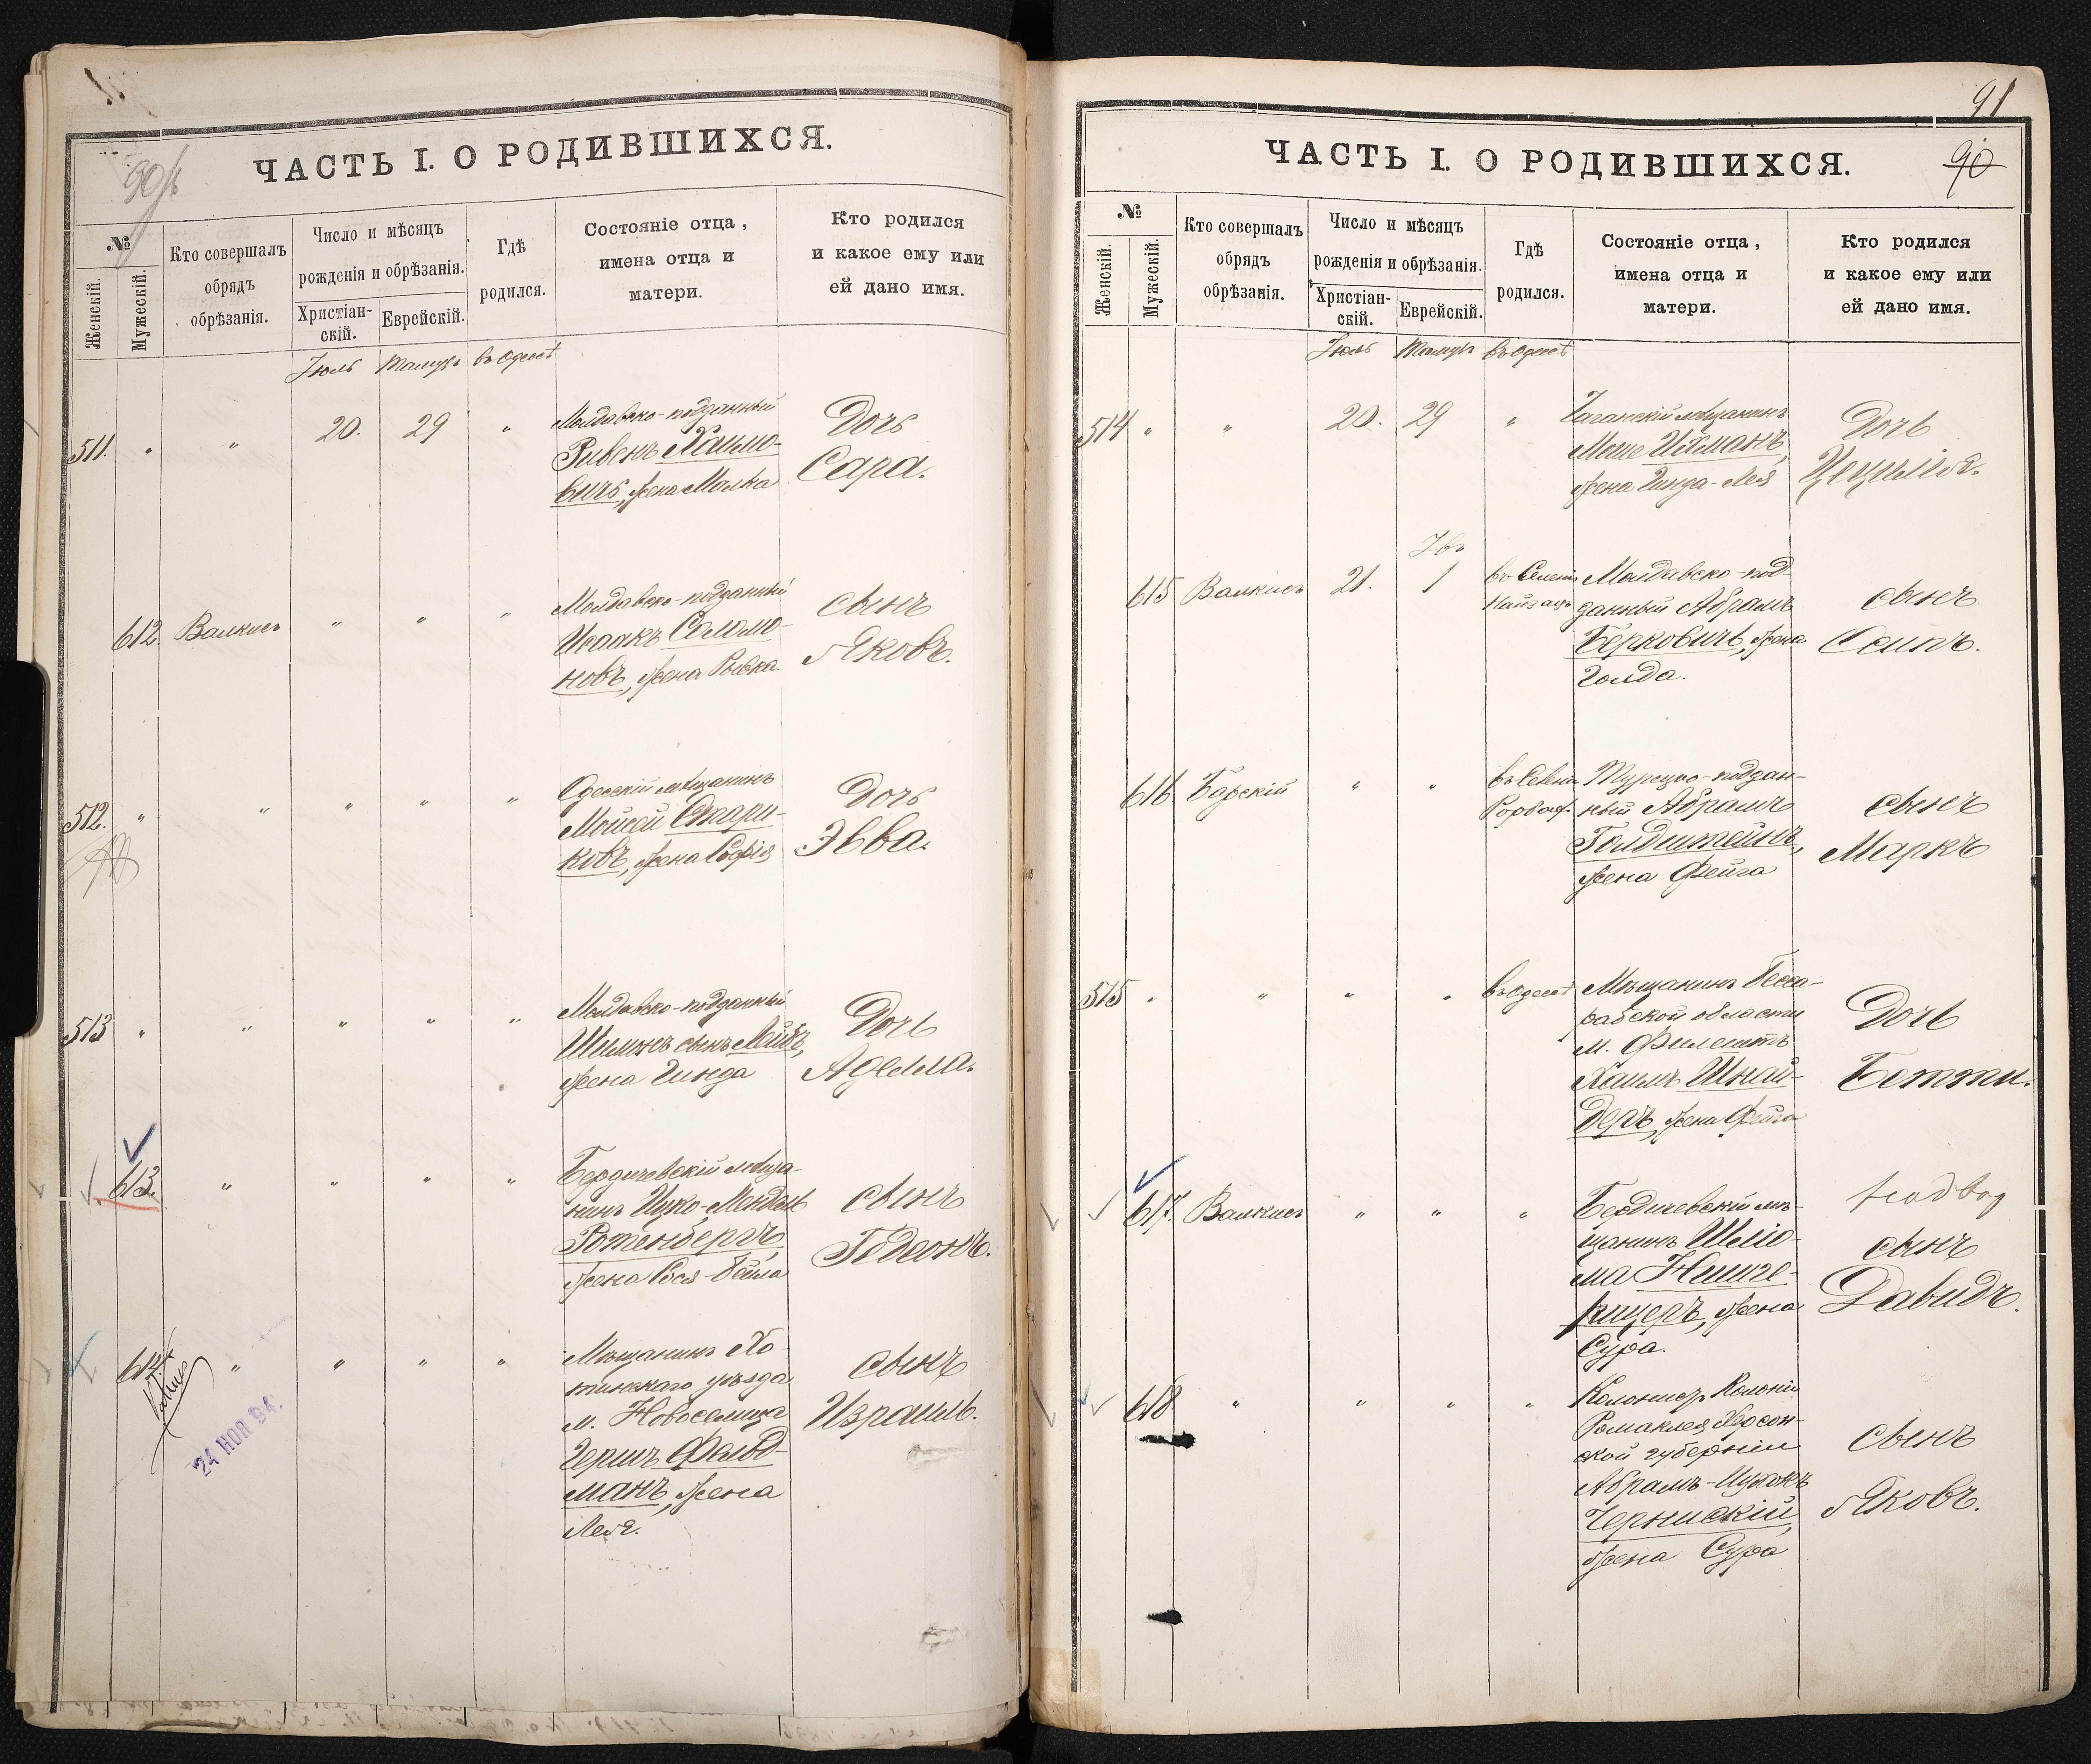 90/б
ЧАСТЬ I. О РОДИВШИХСЯ.
№
Женскій.
Мужескій.
Кто совершалъ
обрядъ
обрѣзанія.
Число и мѣсяцъ
рожденія и обрѣзанія.
Христіан-
скій.
Еврейскій.
Гдѣ
родился.
Состояніе отца,
имена отца и
матери.
Кто родился
и какое ему или
ей дано имя.
Іюль Тамузъ въ Одессѣ
511. " " 20. 29 "
Молдавско-подданный
Рувенъ Хаимо-
вичъ, жена Малка
Дочь
Сара.
612. Валкисъ " " "
Молдавско-подданный
Исаакъ Соломо-
новъ, жена Рывка
сынъ
Яковъ.
512. " " " " "
Одесскій мѣщанинъ
Мойсей Стари-
ковъ, жена Софія
Дочь
Эвва.
513 " " " " "
Молдавско-подданный
Шимонъ сынъ Лейбъ,
жена Гинда
Дочь
Аделла.
613. " " " "
Бердичевскій мѣща-
нинъ Ицко-Мендель
Ротенбергъ,
жена Сося-Бейла
сынъ
Гедеонъ.
614 " " " "
Мѣщанинъ Хо-
тинскаго уѣзда
м. Новоселица
Гершъ Фельд-
манъ, жена
Лея.
сынъ
Израиль.
24 НОЯ 94.
91
90
ЧАСТЬ I. О РОДИВШИХСЯ.
№
Женскій.
Мужескій.
Кто совершалъ
обрядъ
обрѣзанія.
Число и мѣсяцъ
рожденія и обрѣзанія.
Христіан-
скій.
Еврейскій.
Гдѣ
родился.
Состояніе отца,
имена отца и
матери.
Кто родился
и какое ему или
ей дано имя.
Іюль Тамузъ въ Одессѣ
514 " " 20. 29 "
мѣщанинъ
Моше Ихманъ,
жена Гинда-Лея
Дочь
Цецилія.
615 Валкисъ 21. 1
въ Селеніи
Молдавско-под-
данный Абрамъ
Берковичъ, жена
Голда.
сынъ
Осипъ.
616 Барскій " "
Турецко-поддан-
ный Абрамъ
Голдштейнъ,
жена Фейга
сынъ
Маркъ
515 " " " " въ Одессѣ
Мѣщанинъ Бесса-
рабской области
м. Филештъ
Хаимъ Шнай-
деръ, жена Фейга
Дочь
Бетти.
617. Валкисъ " " "
Бердичевскій мѣ-
щанинъ Шліо-
ма
жена
Сура.
сынъ
Давидъ.
618 " " " "
Колонистъ Колоніи
Ромаклея Херсон-
ской губерніи
Абрамъ-Ицхокъ
Чернискій,
жена Сура
сынъ
Яковъ.